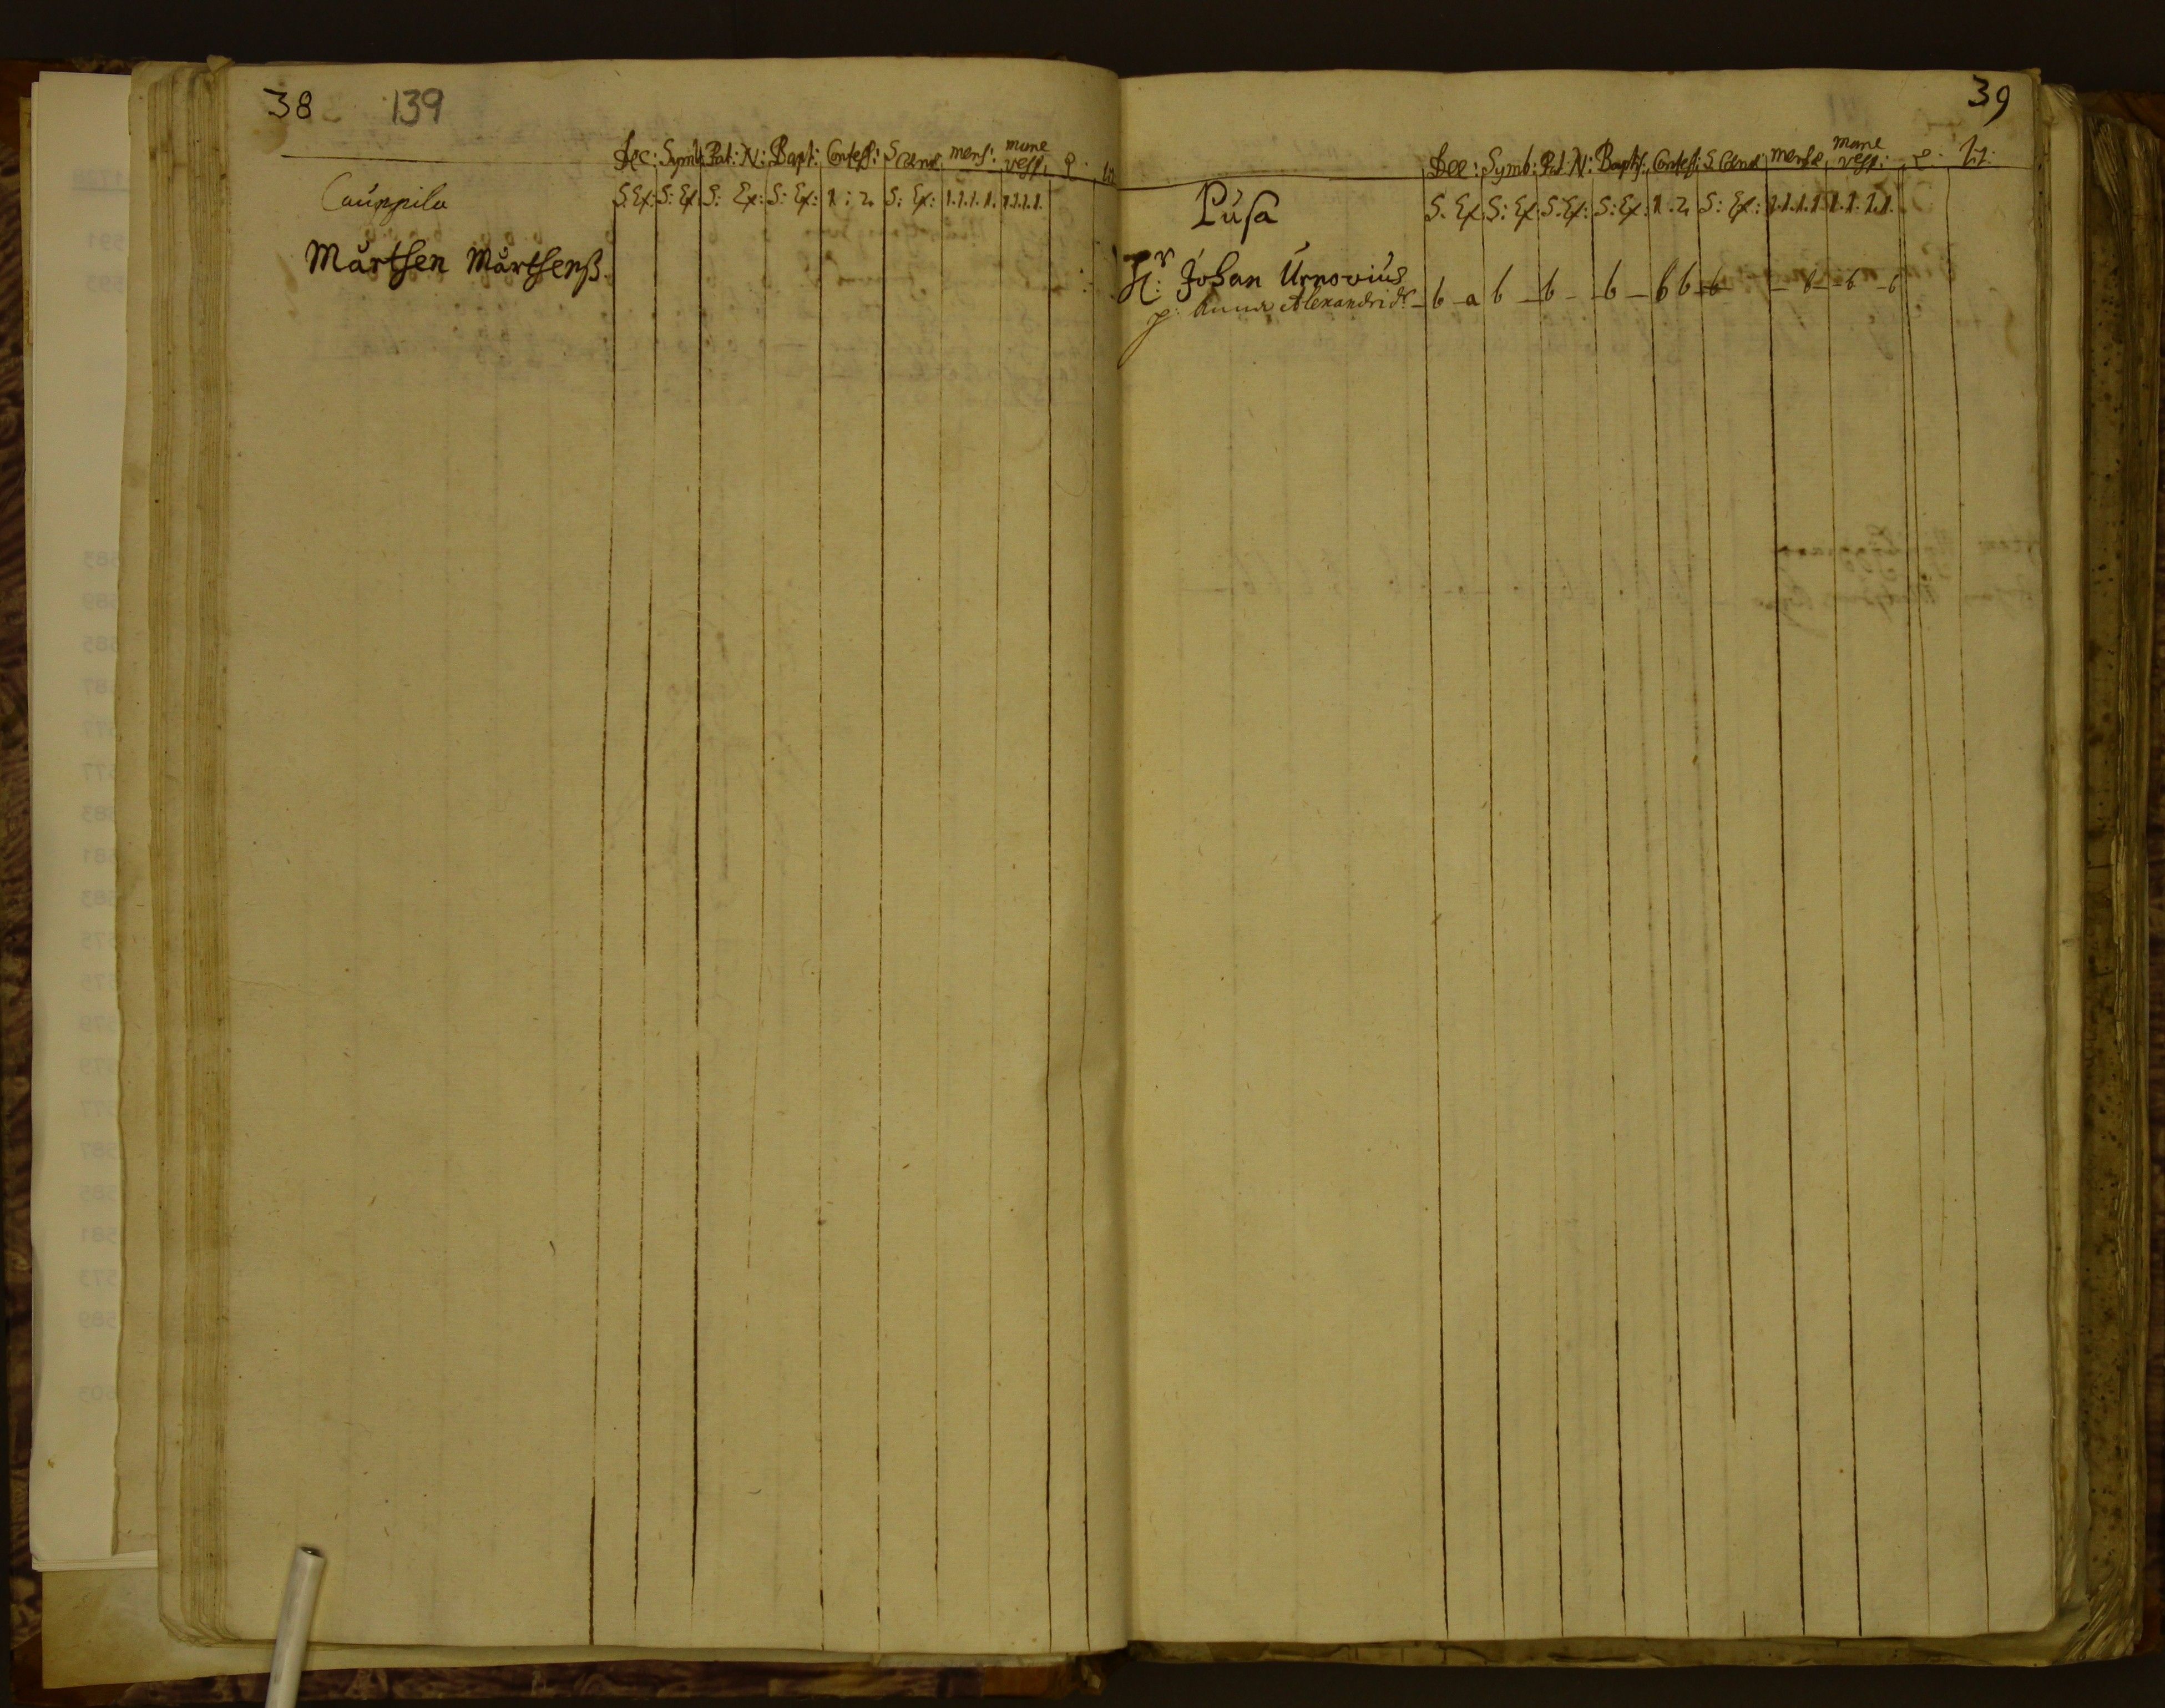 38 139
Dec: Symb: Pat: N: Bapt: Confess: S Cœna: mens: mane vesp:
Cauppila S: Ex: S: Ex: S: Ex: S: Ex: 1: 2. S: Ex: 1.1.1.1. 1.1.1.1.
Mårthen Mårthenß.
39
Dec: Symb: Pat: N: Baptis: Confess: S. Cœna: mensæ, mane vesp:
Pusa S. Ex. S: Ex S: Ex: S: Ex: 1. 2 S: Ex: 1.1.1.1 1.1.1.1
Hr: Johan Urnovius
p: Anna Alexandri dr – b – a b – b – – b – b b – b – – b – – b – b